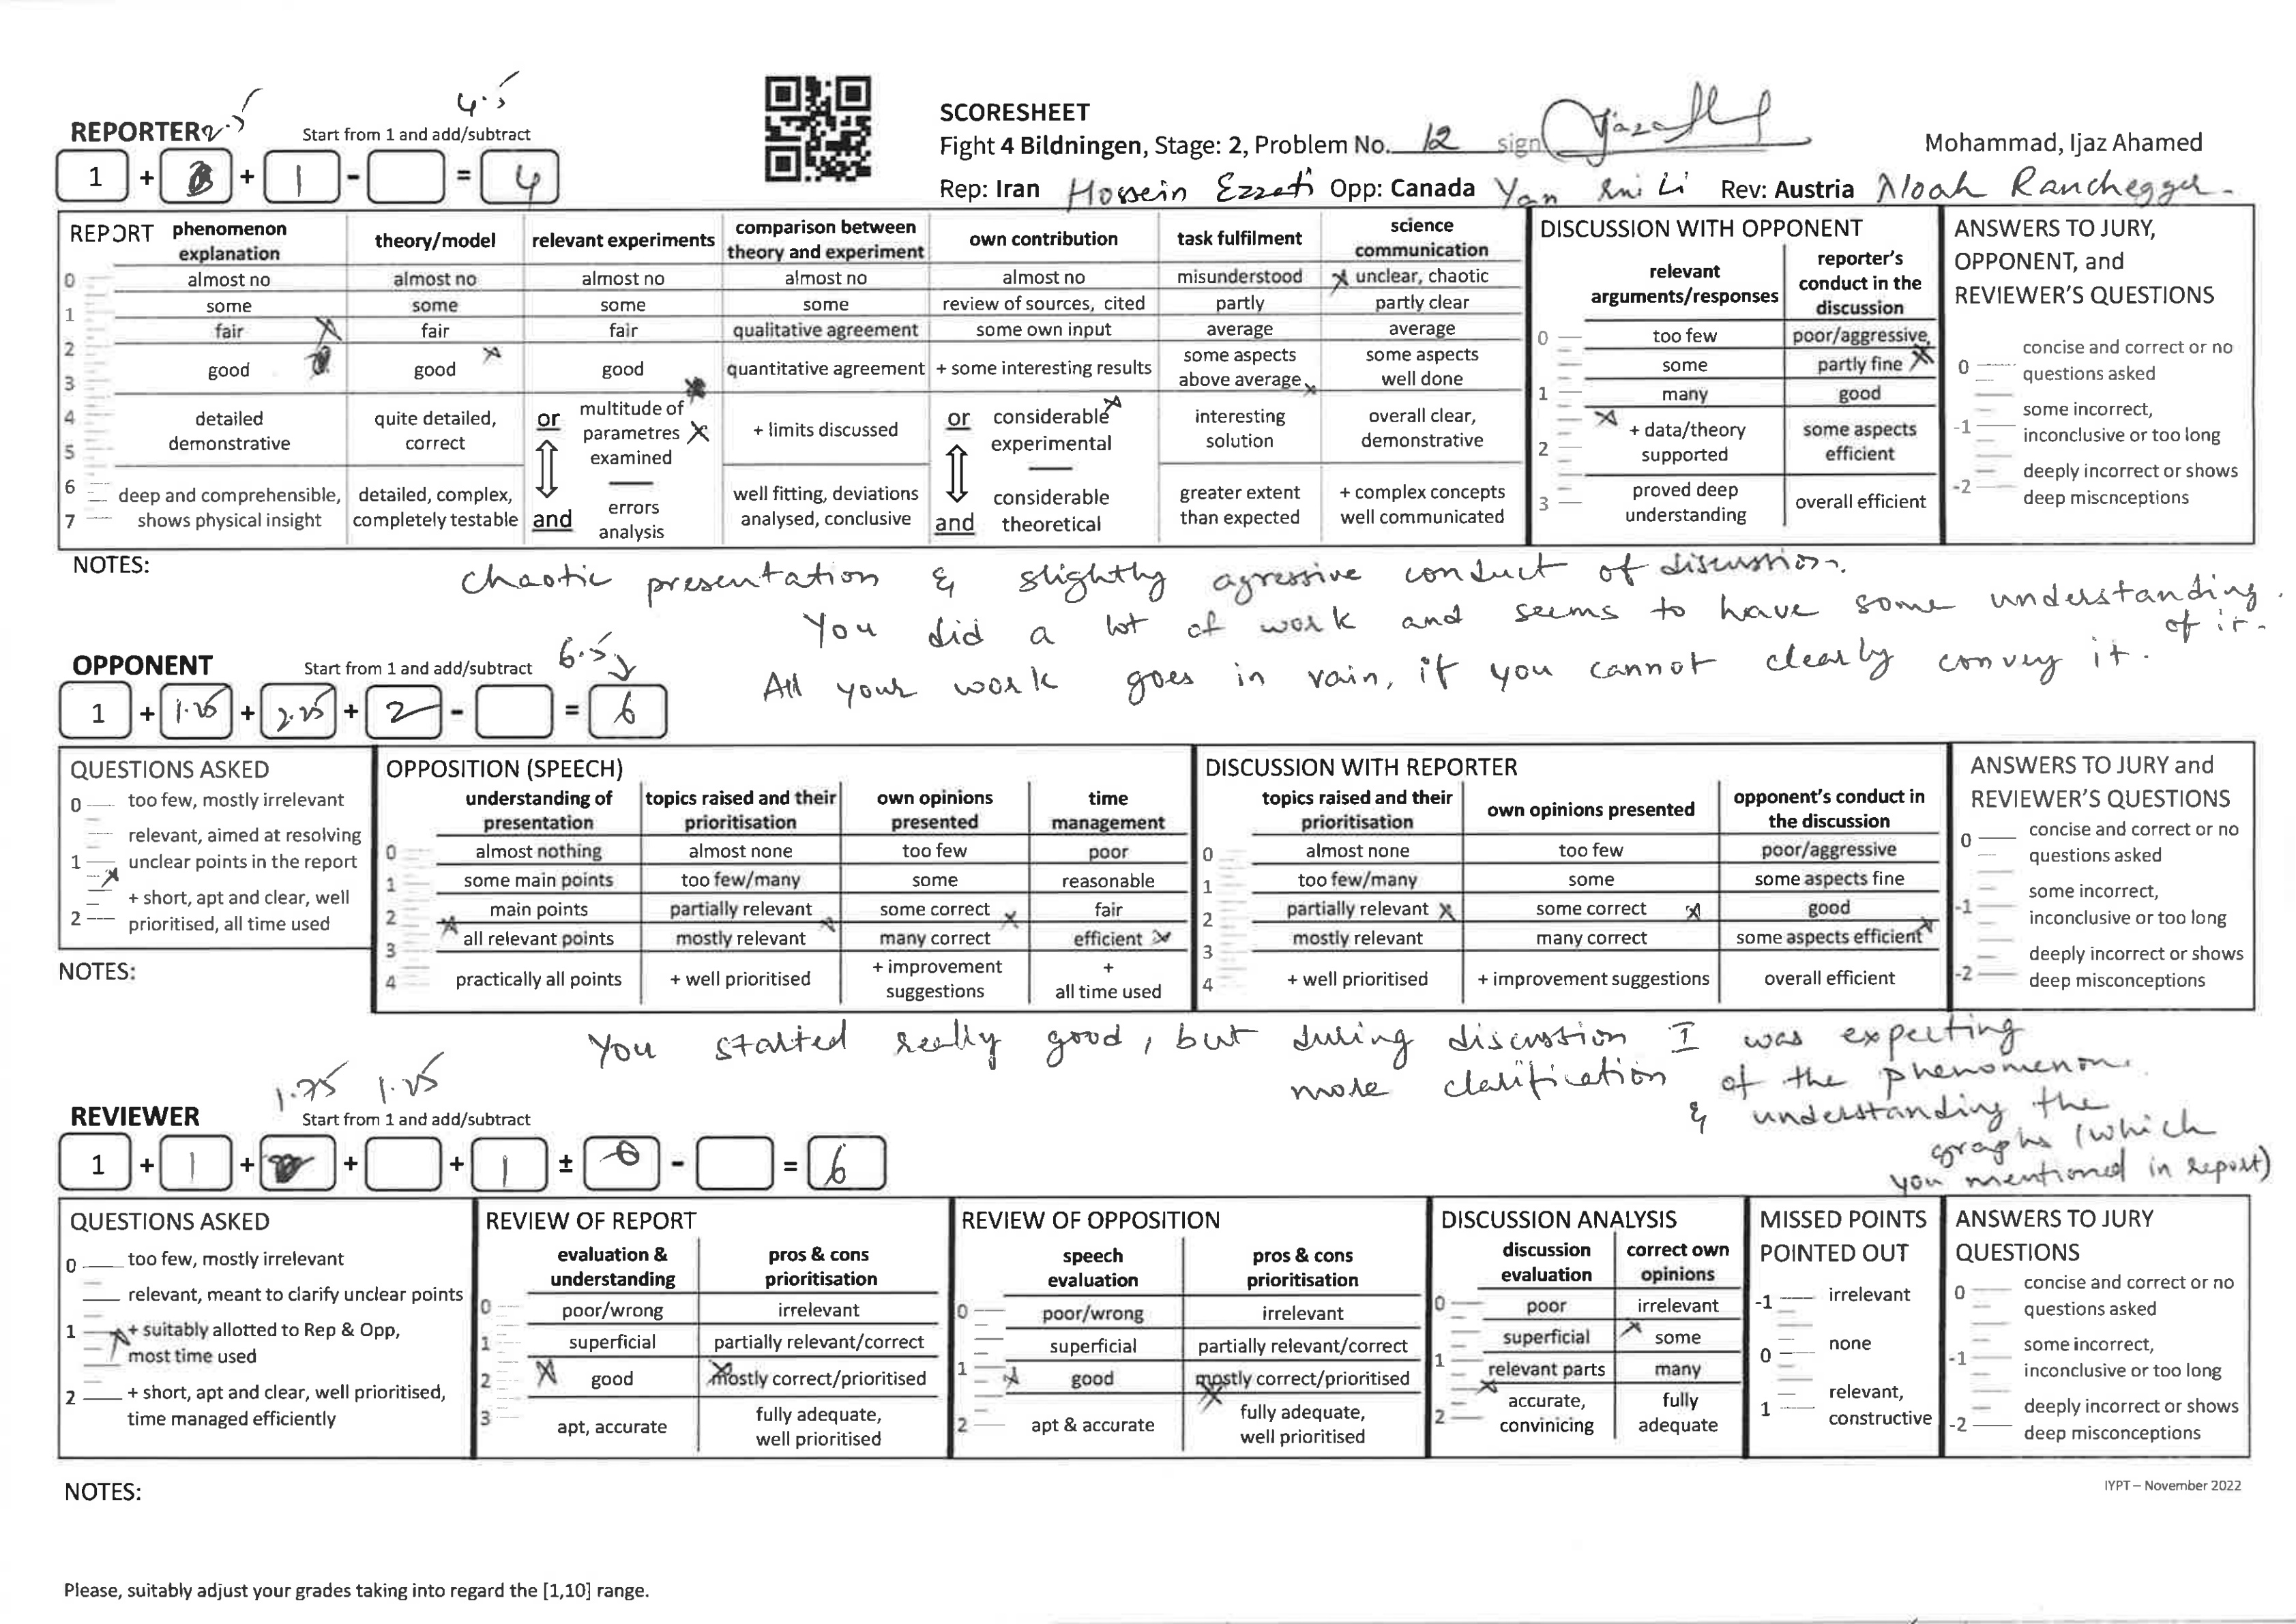 4.5
REPORTER 2.5 Start from 1 and add/subtract
1 + + 1 - = 4
SCORESHEET
Fight 4 Bildningen, Stage: 2, Problem No. 12 sign
Mohammad, Ijaz Ahamed
Rep: Iran Hossein Ezzati Opp: Canada Yan Li Rev: Austria Noah Ranchegger
REPORT phenomenon explanation theory/model relevant experiments comparison between theory and experiment own contribution task fulfilment science communication
0 almost no almost no almost no almost no almost no misunderstood unclear, chaotic
1 some some some some review of sources, cited partly partly clear
2 fair fair fair qualitative agreement some own input average average
3 good good good quantitative agreement + some interesting results some aspects above average some aspects well done
4 detailed demonstrative quite detailed, correct or multitude of parametres examined + limits discussed or considerable experimental interesting solution overall clear, demonstrative
5
6 deep and comprehensible, shows physical insight detailed, complex, completely testable and errors analysis well fitting, deviations analysed, conclusive and considerable theoretical greater extent than expected + complex concepts well communicated
7
DISCUSSION WITH OPPONENT
relevant arguments/responses reporter's conduct in the discussion
0 too few poor/aggressive
some partly fine
1 many good
2 + data/theory supported some aspects efficient
3 proved deep understanding overall efficient
ANSWERS TO JURY, OPPONENT, and REVIEWER'S QUESTIONS
0 concise and correct or no questions asked
-1 some incorrect, inconclusive or too long
-2 deeply incorrect or shows deep miscnceptions
NOTES:
chaotic presentation & slightly agressive conduct of discussion.
You did a lot of work and seems to have some understanding of it.
All your work goes in vain, if you cannot clearly convey it.
OPPONENT Start from 1 and add/subtract 6.5
1 + 1.25 + 2.25 + 2 - = 6
QUESTIONS ASKED
0 too few, mostly irrelevant
relevant, aimed at resolving
1 unclear points in the report
+ short, apt and clear, well
2 prioritised, all time used
NOTES:
OPPOSITION (SPEECH)
understanding of presentation topics raised and their prioritisation own opinions presented time management
0 almost nothing almost none too few poor
1 some main points too few/many some reasonable
2 main points partially relevant some correct fair
3 all relevant points mostly relevant many correct efficient
4 practically all points + well prioritised + improvement suggestions + all time used
DISCUSSION WITH REPORTER
topics raised and their prioritisation own opinions presented opponent's conduct in the discussion
0 almost none too few poor/aggressive
1 too few/many some some aspects fine
2 partially relevant some correct good
3 mostly relevant many correct some aspects efficient
4 + well prioritised + improvement suggestions overall efficient
ANSWERS TO JURY and REVIEWER'S QUESTIONS
0 concise and correct or no questions asked
-1 some incorrect, inconclusive or too long
-2 deeply incorrect or shows deep misconceptions
You started really good, but during discussion I was expecting
more clarification of the phenomenon.
& understanding the
graphs (which
you mentioned in report)
1.75 1.25
REVIEWER Start from 1 and add/subtract
1 + 1 + + + 1 ± 0 - = 6
QUESTIONS ASKED
0 too few, mostly irrelevant
relevant, meant to clarify unclear points
1 + suitably allotted to Rep & Opp, most time used
2 + short, apt and clear, well prioritised, time managed efficiently
REVIEW OF REPORT
evaluation & understanding pros & cons prioritisation
0 poor/wrong irrelevant
1 superficial partially relevant/correct
2 good mostly correct/prioritised
3 apt, accurate fully adequate, well prioritised
REVIEW OF OPPOSITION
speech evaluation pros & cons prioritisation
0 poor/wrong irrelevant
superficial partially relevant/correct
1 good mostly correct/prioritised
2 apt & accurate fully adequate, well prioritised
DISCUSSION ANALYSIS
discussion evaluation correct own opinions
0 poor irrelevant
superficial some
1 relevant parts many
2 accurate, convinicing fully adequate
MISSED POINTS POINTED OUT
-1 irrelevant
0 none
1 relevant, constructive
ANSWERS TO JURY QUESTIONS
0 concise and correct or no questions asked
-1 some incorrect, inconclusive or too long
-2 deeply incorrect or shows deep misconceptions
NOTES:
IYPT – November 2022
Please, suitably adjust your grades taking into regard the [1,10] range.